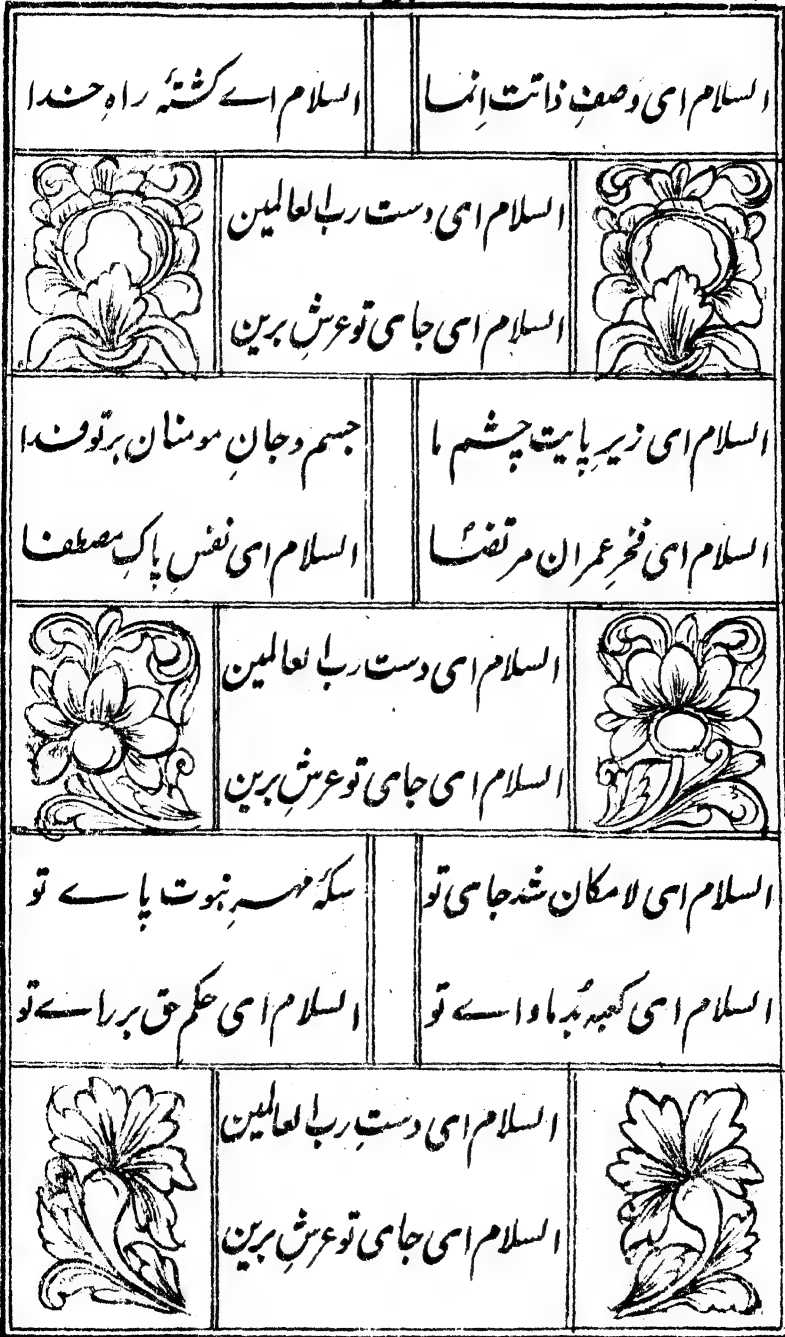 السلام ای وصفِ ذاتت اِنما السلام اے کشتۂ راہِ خدا
السلام ای دست رب العالمین
السلام ای جای تو عرشِ برین
السلام ای زیرِ پایت چشم ما جسم و جانِ مومنان بر تو فدا
السلام ای فخرِ عمران مرتضا السلام ای نفسِ پاکِ مصطفا
السلام ای دست رب العالمین
السلام ای جای تو عرشِ برین
السلام ای لامکان شد جای تو سکۂ مہرِ نبوت پاے تو
السلام ای کعبہ بُد ماواے تو السلام ای حکمِ حق بر راے تو
السلام ای دستِ رب العالمین
السلام ای جای تو عرشِ برین